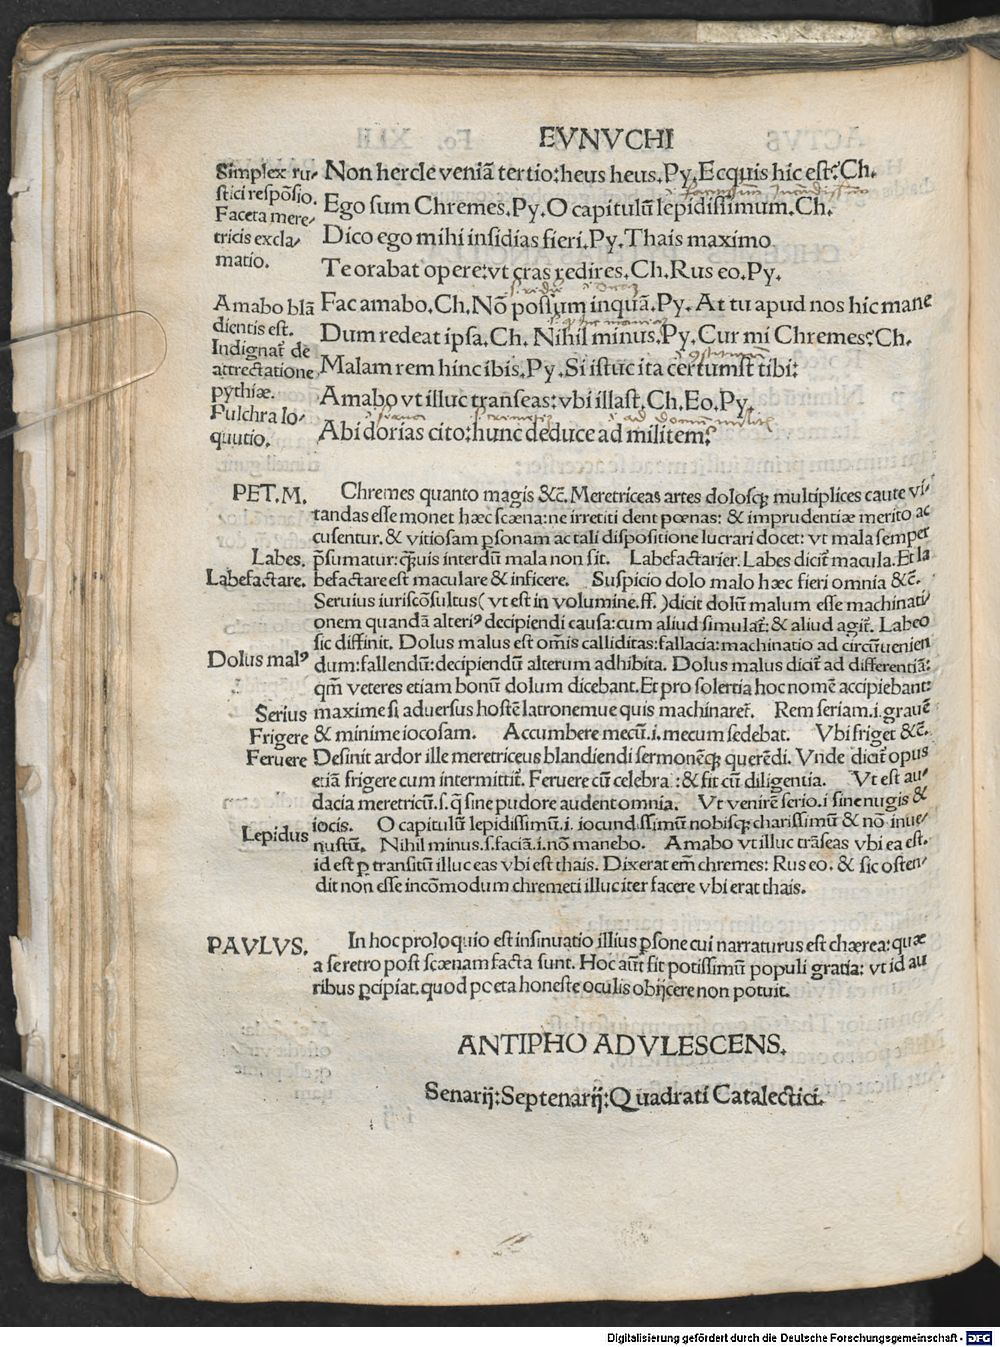 EVNVCHI
Simplex ru-
stici respõsio.
Faceta mere
tricis excla-
matio.
Non hercle veniã tertio: heus heus. Py. Ecquis hic est? Ch.
Ego sum Chremes. Py. O capitulũ lepidissimum. Ch.
Dico ego mihi insidias fieri. Py. Thais maximo
Te orabat opere: vt cras redires. Ch. Rus eo. Py.
Amabo blã
dientis est.
Indignat̃ de
attrectatione
pythiæ.
Pulchra lo-
quutio.
Fac amabo. Ch. Nõ possum inquã. Py. At tu apud nos hic mane
Dum redeat ipsa. Ch. Nihil minus. Py. Cur mi Chremes? Ch.
Malam rem hinc ibis. Py. Si istuc ita certumst tibi:
Amabo vt illuc transeas: vbi illast. Ch. Eo. Py.
Abi dorias cito: hunc deduce ad militem.
PET. M.
Chremes quanto magis &c̃. Meretriceas artes dolosq; multiplices caute vi-
tandas esse monet hæc scæna: ne irretiti dent pœnas: & imprudentiæ merito ac
cusentur. & vitiosam ꝑsonam ac tali dispositione lucrari docet: vt mala semper
Labes.
p̃sumatur: q̃uis interdũ mala non sit. Labefactarier. Labes dicit̃ macula. Et la
Labefactare.
befactare est maculare & inficere. Suspicio dolo malo hæc fieri omnia &c̃.
Seruius iuriscõsultus (vt est in volumine. ff.) dicit dolũ malum esse machinati-
onem quandã alteriꝰ decipiendi causa: cum aliud simulat̃: & aliud agit̃. Labeo
sic diffinit. Dolus malus est om̃is calliditas: fallacia: machinatio ad circũuenien
Dolus malꝰ
dum: fallendũ: decipiendũ alterum adhibita. Dolus malus dicit̃ ad differentiã:
qm̃ veteres etiam bonũ dolum dicebant. Et pro solertia hoc nomẽ accipiebant:
Serius
maxime si aduersus hostẽ latronemue quis machinaret̃. Rem seriam. i. grauẽ
Frigere
& minime iocosam. Accumbere mecũ. i. mecum sedebat. Vbi friget &c̃.
Feruere
Desinit ardor ille meretriceus blandiendi sermonẽq; querẽdi. Vnde dicit̃ opus
etiã frigere cum intermittit̃. Feruere cũ celebra : & fit cũ diligentia. Vt est au-
dacia meretricũ. s. q̃ sine pudore audent omnia. Vt venirẽ serio. i sine nugis &
Lepidus
iocis. O capitulũ lepidissimũ. i. iocund ssimũ nobisq; charissimũ & nõ inue-
nustũ. Nihil minus. s. faciã. i. nõ manebo. Amabo vt illuc trãseas vbi ea est.
id est ꝑ transitũ illuc eas vbi est thais. Dixerat em̃ chremes: Rus eo. & sic osten-
dit non esse incõmodum chremeti illuc iter facere vbi erat thais.
PAVLVS.
In hoc proloquio est insinuatio illius ꝑsone cui narraturus est chærea: quæ
a se retro post scænam facta sunt. Hoc aũt fit potissimũ populi gratia: vt id au
ribus ꝑcipiat. quod pceta honeste oculis obijcere non potuit.
ANTIPHO ADVLESCENS.
Senarij: Septenarij: Quadrati Catalectici.
Digitalisierung gefördert durch die Deutsche Forschungsgemeinschaft - DFG